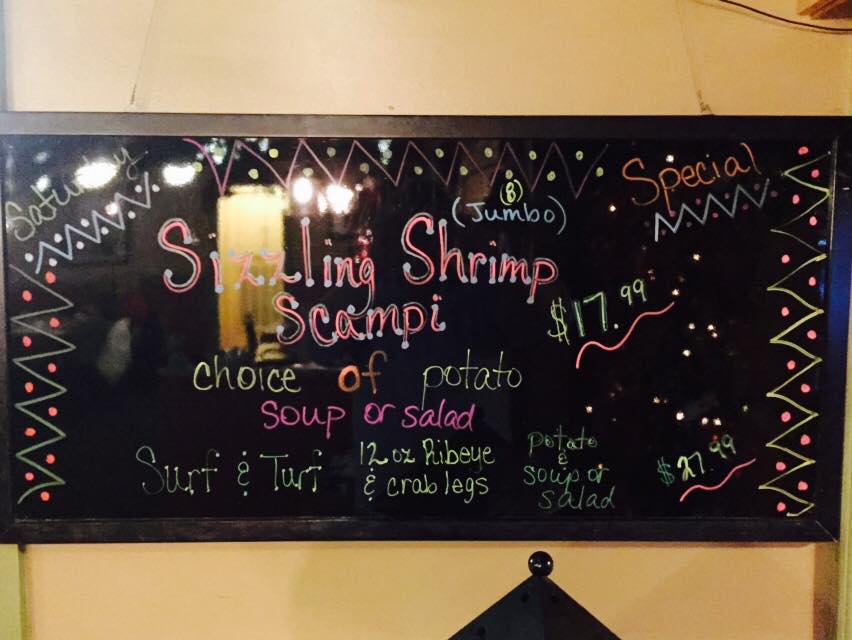 Saturday Special
(8)
(Jumbo)
Sizzling Shrimp
Scampi
$17.99
choice of potato
soup or salad
Surf & Turf
12 oz Ribeye
& crab legs
potato
&
soup or
salad
$27.99